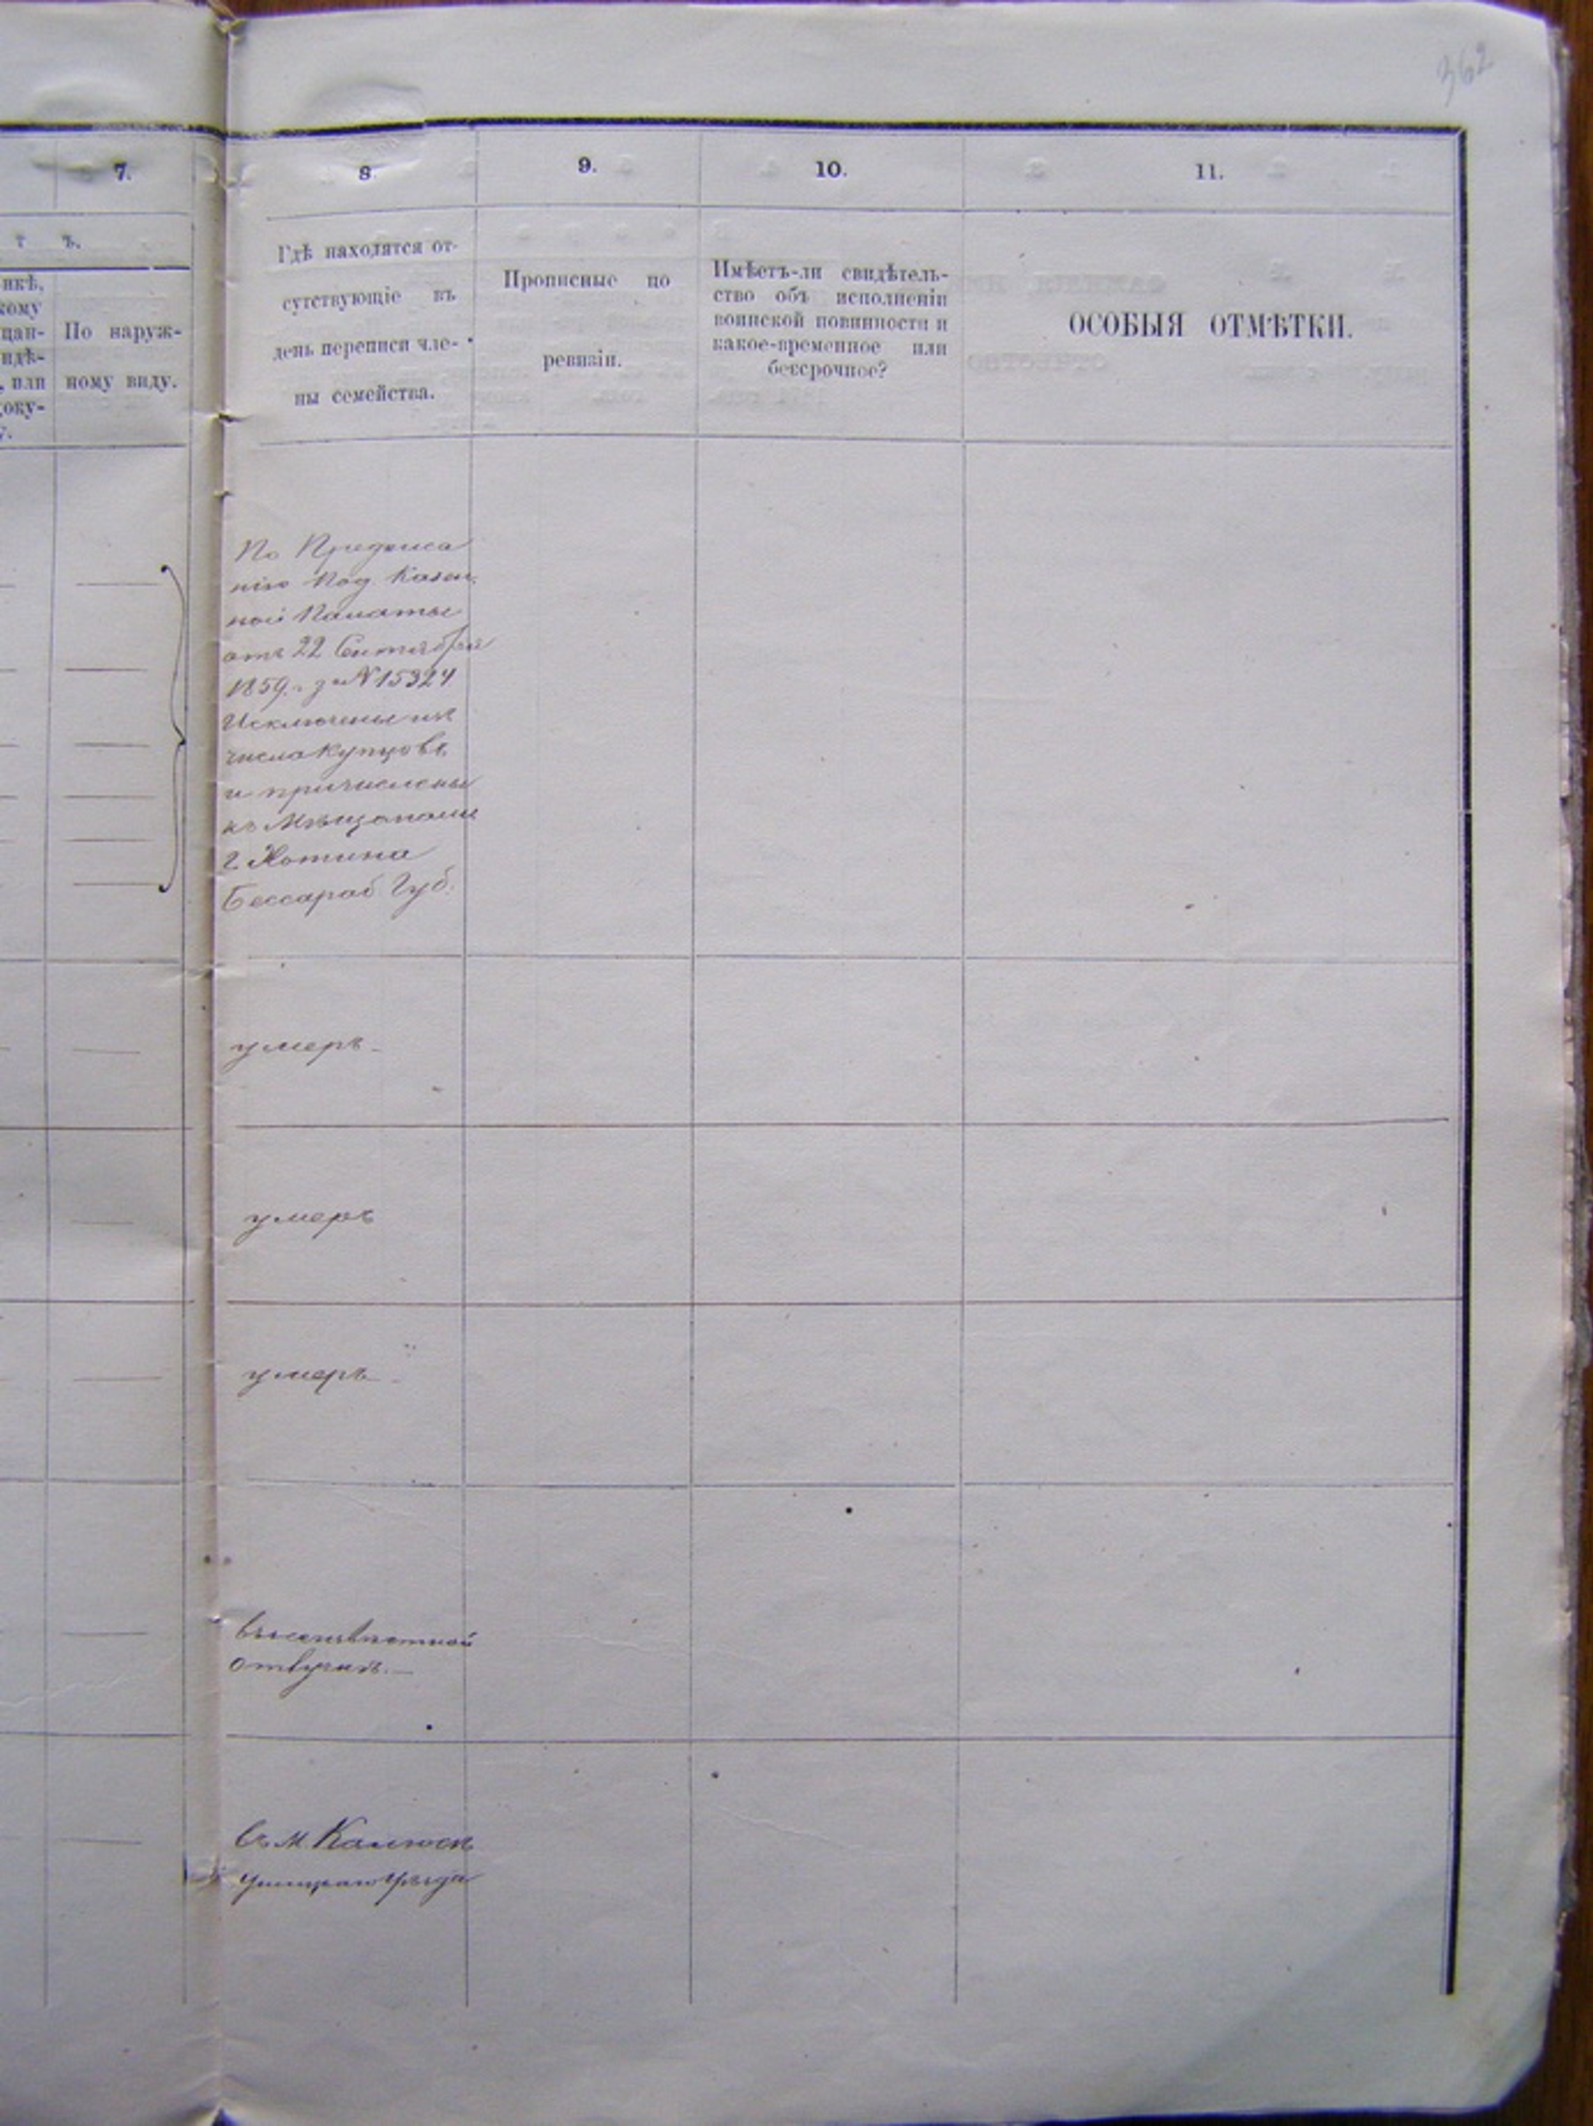 362
7.
8
9.
10.
11.
т ъ.
нкѣ,
кому
цан-
идѣ-
, или
оку-
у.
По наруж-
ному виду.
Гдѣ находятся от-
сутствующіе въ
день переписи чле-
ны семейства.
Прописные по
ревизіи.
Имѣетъ-ли свидѣтель-
ство объ исполненіи
воинской повинности и
какое-временное или
безсрочное?
ОСОБЫЯ ОТМѢТКИ.
По Предписа
нію Под. Казен.
ной Палаты
отъ 22 Сентября
1859 г. за № 15324
Исключены изъ
числа купцовъ
и причислены
къ Мѣщанамъ
г Хотина
Бессараб Губ.
умеръ
умеръ
умеръ
отлучкѣ.
въ м. Калюсѣ
Ушицкаго Уѣзда